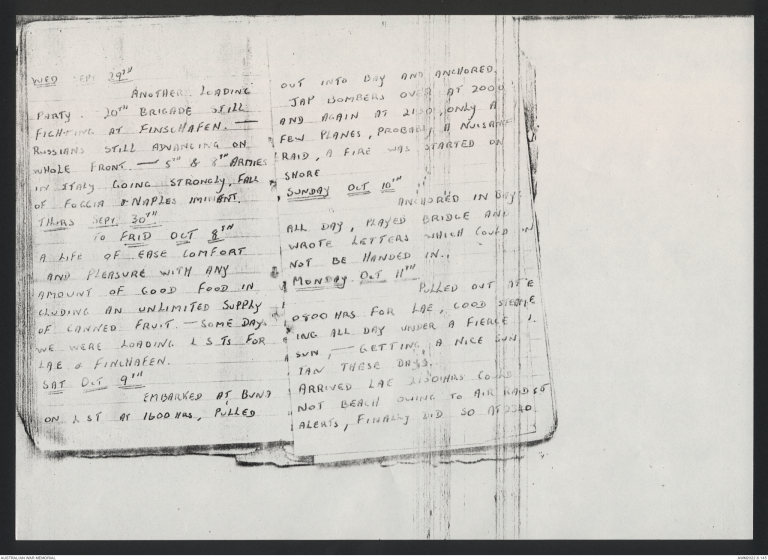 WED SEPT 29TH
ANOTHER LOADING
PARTY. 20TH BRIGADE STILL
FIGHTING AT FINSCHAFEN. —
RUSSIANS STILL ADVANCING ON
WHOLE FRONT. — 5TH & 8TH ARMIES
IN ITALY GOING STRONGLY, FALL
OF FOGGIA & NAPLES IMINENT.
THURS SEPT 30TH
TO FRID OCT 8TH
A LIFE OF EASE COMFORT
AND PLEASURE WITH ANY
AMOUNT OF GOOD FOOD IN
CLUDING AN UNLIMITED SUPPLY
OF CANNED FRUIT. — SOME DAYS
WE WERE LOADING L STS FOR
LAE & FINCHAFEN.
SAT OCT 9TH
EMBARKED AT BUNA
ON LST AT 1600 HRS, PULLED
OUT INTO BAY AND ANCHORED.
JAP BOMBERS OVER AT 2000
AND AGAIN AT ONLY A
FEW PLANES, PROBABLY A NUISANCE
RAID, A FIRE WAS STARTED ON
SHORE
SUNDAY OCT 10TH
ANCHORED IN BAY
ALL DAY, PLAYED BRIDGE AND
WROTE LETTERS WHICH COULD
NOT BE HANDED IN.
MONDAY OCT 11TH
PULLED OUT AT
0800 HRS FOR LAE, GOOD STEAM
ING ALL DAY UNDER A FIERCE
SUN, — GETTING A NICE SUN
TAN THESE DAYS.
ARRIVED LAE HRS COULD
NOT BEACH OWING TO AIR RAID
ALERTS, FINALLY DID SO AT 2340
AUSTRALIAN WAR MEMORIAL